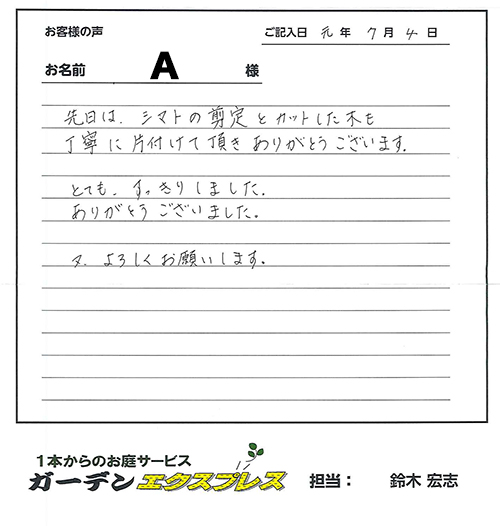 お客様の声
ご記入日 元年 7月 4日
お名前 A 様
先日は、シマトの剪定とカットした木も
丁寧に片付けて頂きありがとうございます。
とても、すっきりしました。
ありがとうございました。
又、よろしくお願いします。
1本からのお庭サービス
ガーデンエクスプレス 担当： 鈴木 宏志